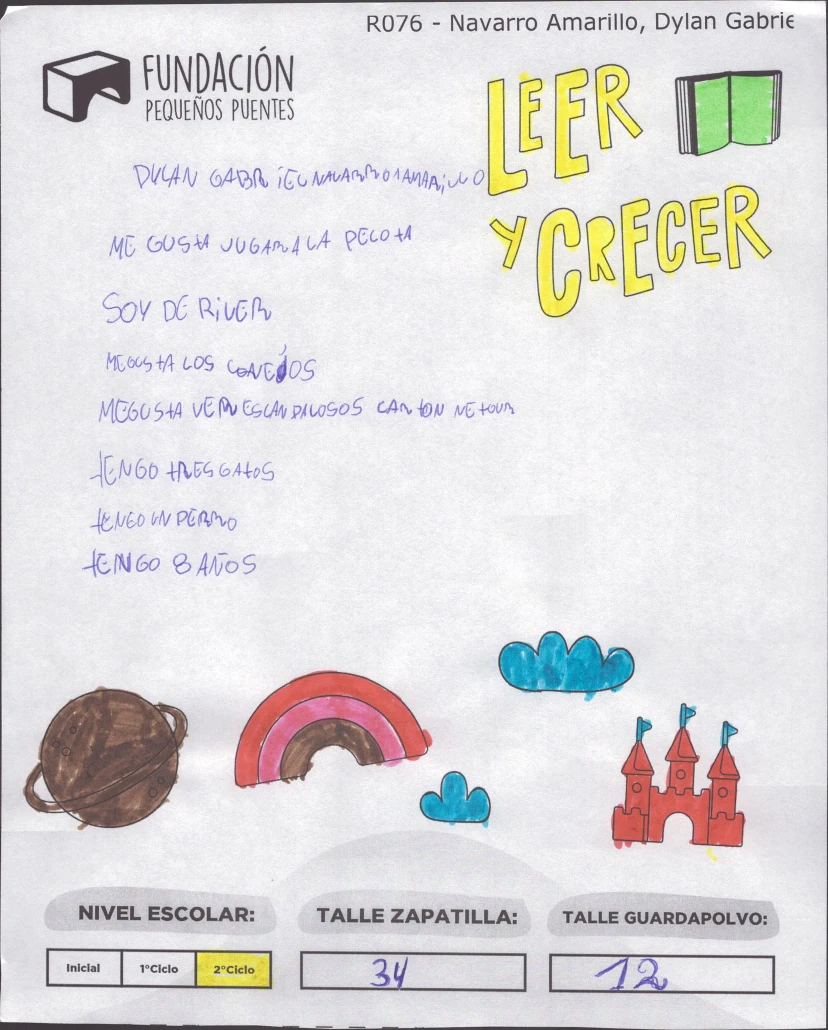 R076 - Navarro Amarillo, Dylan Gabrie
FUNDACIÓN
PEQUEÑOS PUENTES
LEER
Y CRECER
DYLAN GABRiEL NAVARRO AMARiLLO
ME GUSTA JUGAR A LA PELOTA
SOY DE RiVER
ME GUSTA LOS CONEJOS
ME GUSTA VER ESCANDALOSOS CARTON NETOUR
TENGO TRES GATOS
TENGO UN PERRO
TENGO 8 AÑOS
NIVEL ESCOLAR:
TALLE ZAPATILLA:
TALLE GUARDAPOLVO:
Inicial 1°Ciclo 2°Ciclo
34
12